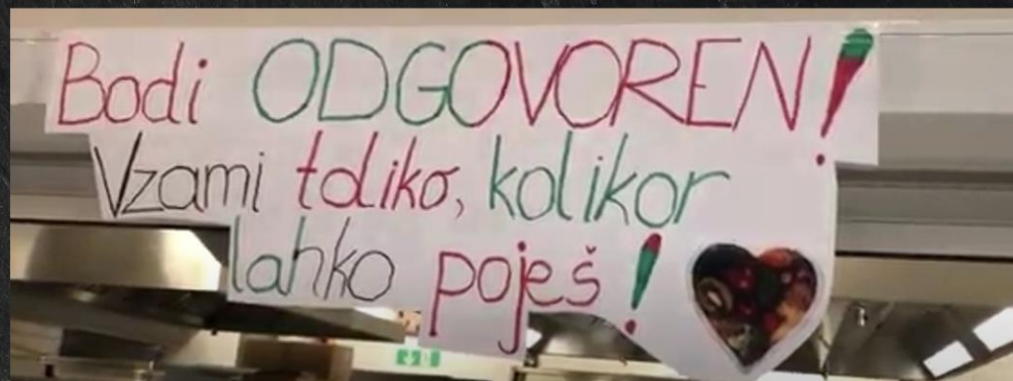 Bodi ODGOVOREN!
Vzami toliko, kolikor
lahko poješ!